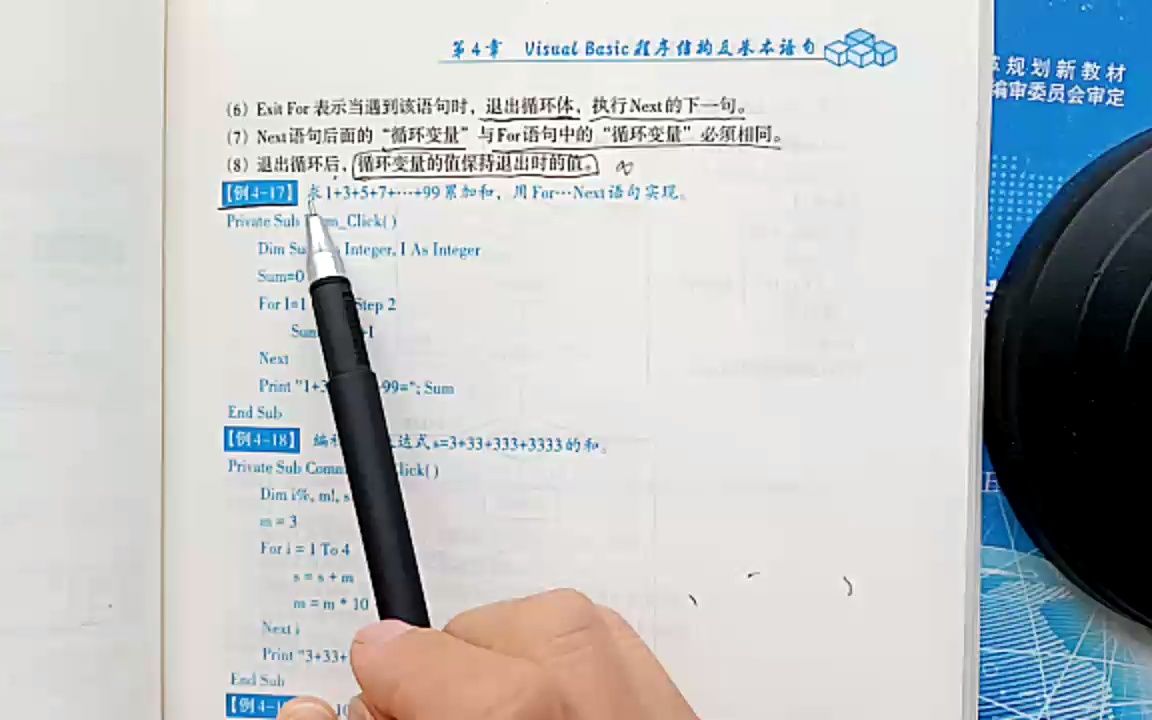 第4章 Visual Basic程序结构及基本语句
(6) Exit For 表示当遇到该语句时，退出循环体，执行Next的下一句。
(7) Next语句后面的“循环变量”与For语句中的“循环变量”必须相同。
(8) 退出循环后，循环变量的值保持退出时的值。
【例4-17】 求1+3+5+7+…+99累加和，用For…Next语句实现。
Private Sub Click( )
Dim Integer, I As Integer
Sum=0
For I=1 Step 2
Sum +I
Next
Print "1+3 99="; Sum
End Sub
【例4-18】 编 达式s=3+33+333+3333的和。
Private Sub Click( )
Dim i%, m!, s
m = 3
For i = 1 To 4
s = s + m
m = m * 10
Next i
Print "3+33+
End Sub
【例4-1
10
规划新教材
编审委员会审定